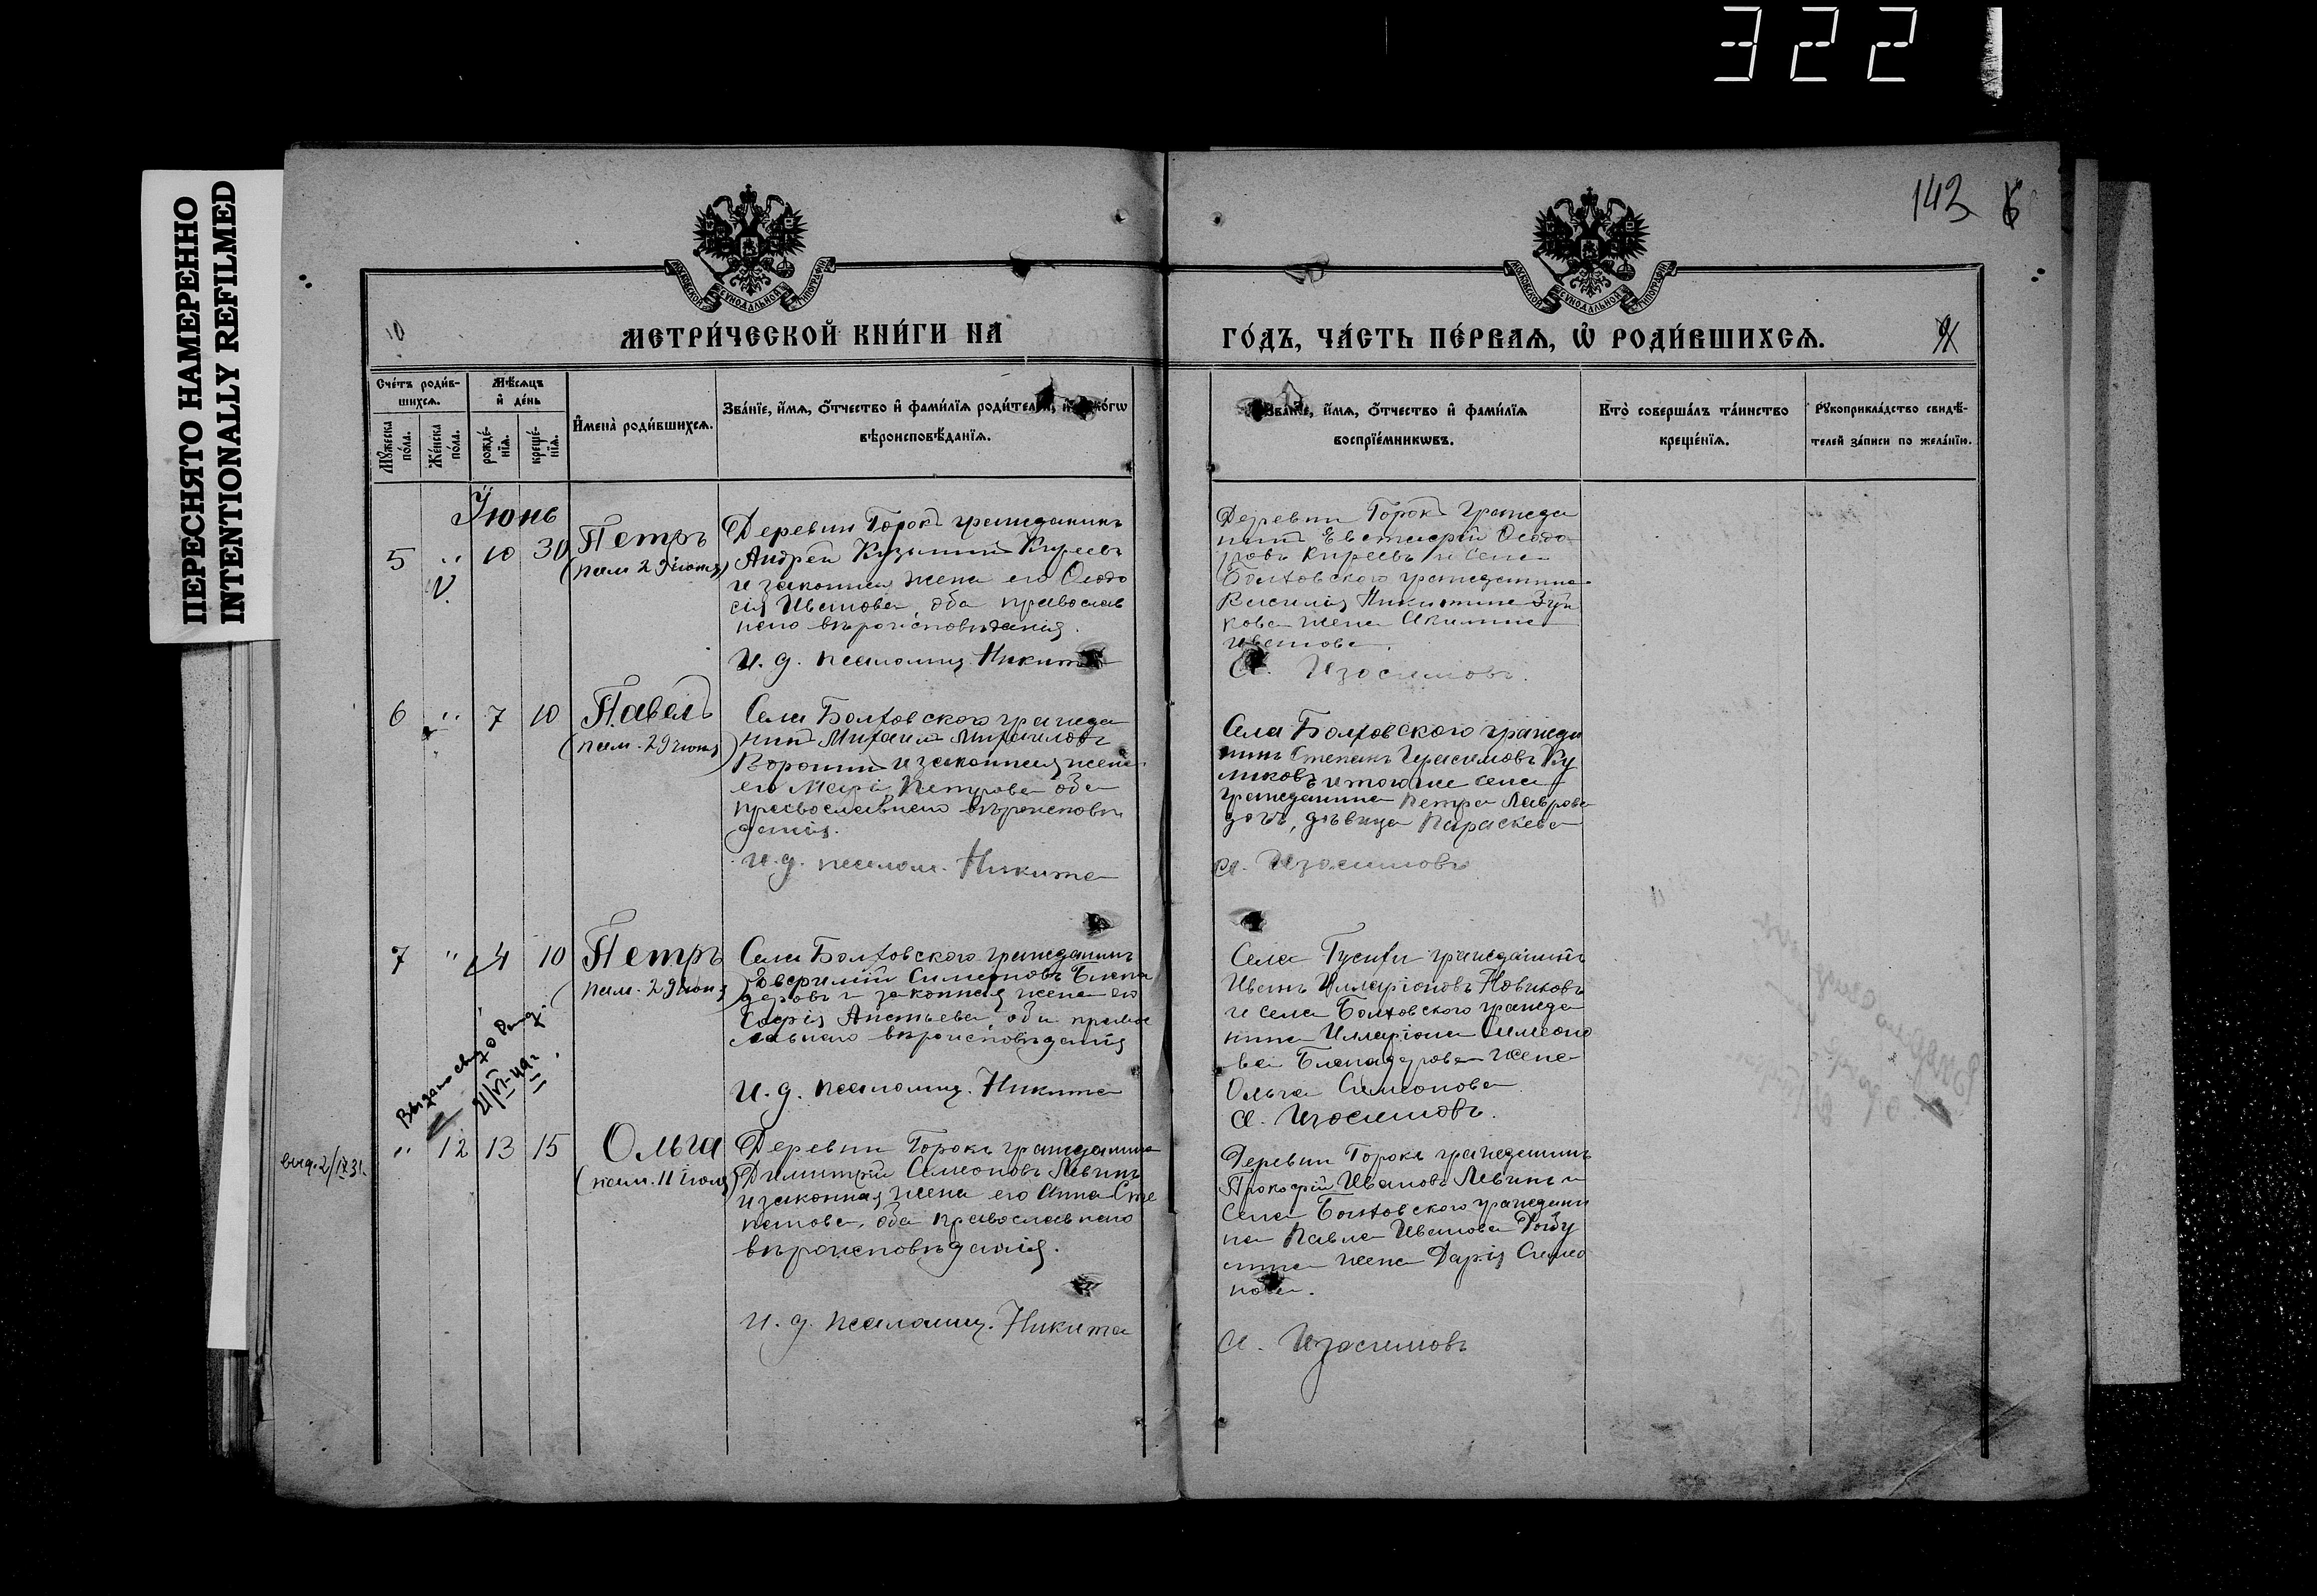 322
ПЕРЕСНЯТО НАМЕРЕННО
INTENTIONALLY REFILMED
143
МОСКОВСКОЙ СѴНОДАЛЬНОЙ ТИПОГРАФІИ
МОСКОВСКОЙ СѴНОДАЛЬНОЙ ТИПОГРАФІИ
10
МЕТРИ́ЧЕСКОЙ КНИ́ГИ НА
ГО́ДЪ, ЧА́СТЬ ПЕ́РВАѦ, Ѽ РОДИ́ВШИХСѦ.
Сче́тъ роди́в-
шихсѧ.
Мꙋ́жеска по́ла.
Же́нска по́ла.
Мѣ́сѧцъ
и҆ де́нь
рожде́-нїѧ.
креще́-нїѧ.
И҆мена̀ роди́вшихсѧ.
Зва́нїе, и҆́мѧ, ѻ҆́тчество и҆ фами́лїѧ роди́телей, и҆ како́гѡ
вѣроисповѣ́данїѧ.
Зва́нїе, и҆́мѧ, ѻ҆́тчество и҆ фами́лїѧ
воспрїе́мникѡвъ.
Кто̀ соверша́лъ та́инство
креще́нїѧ.
Рꙋкоприкла́дство свидѣ́-
телей за́писи по жела́нїю.
Іюнь
5 " 10 30
Петръ
(пам. 29 іюня)
Деревни Горокъ гражданинъ
Андрей Кузьминъ Киреевъ
и законная жена его Ѳеодо
сія Иванова, оба православ
наго вѣроисповѣданія.
И. д. псаломщ. Никита
Деревни Горокъ гражда
нинъ Евстафій Ѳеодо
ровъ Киреевъ и села
Болховского гражданина
Василія Никитина Зуй
кова жена Акилина
Иванова.
А. Изосимовъ.
6 " 7 10
Павелъ
(пам. 29 іюня)
Села Болховского гражда
нинъ Михаилъ Михаиловъ
Воронинъ и законная жена
его Марія Петрова оба
православнаго вѣроисповѣ
данія.
И. д. псалом. Никита
Села Болховского гражда
нинъ Степанъ Герасимовъ Ку
ликовъ и того же села
гражданина Петра Лаврова
дочь, дѣвица Параскева
А. Изосимовъ
7 " 4 10
Петръ
(пам. 29 іюня)
Села Болховского гражданинъ
законная жена его
Софія оба правос
лавнаго вѣроисповѣданія
И. д. псаломщ. Никита
Села гражданинъ
Иванъ Илларіоновъ Новиковъ
и села Болховского гражда
нина Илларіона Симеоно
ва жена
Ольга Симеонова
А. Изосимовъ.
Выдано свид. о рожд.
21/VI-49г.
выд. 2/IX 31.
" 12 13 15
Ольга
(пам. 11 іюля)
Деревни Горокъ гражданинъ
Димитрій Симеоновъ Левинъ
и законная жена его Анна Сте
панова, оба православнаго
вѣроисповѣданія.
И. д. псаломщ. Никита
Деревни Горокъ гражданинъ
Прокофій Ивановъ Левинъ и
села Болховского граждани
на Павла Иванова
жена Дарія Симео
нова.
А. Изосимовъ